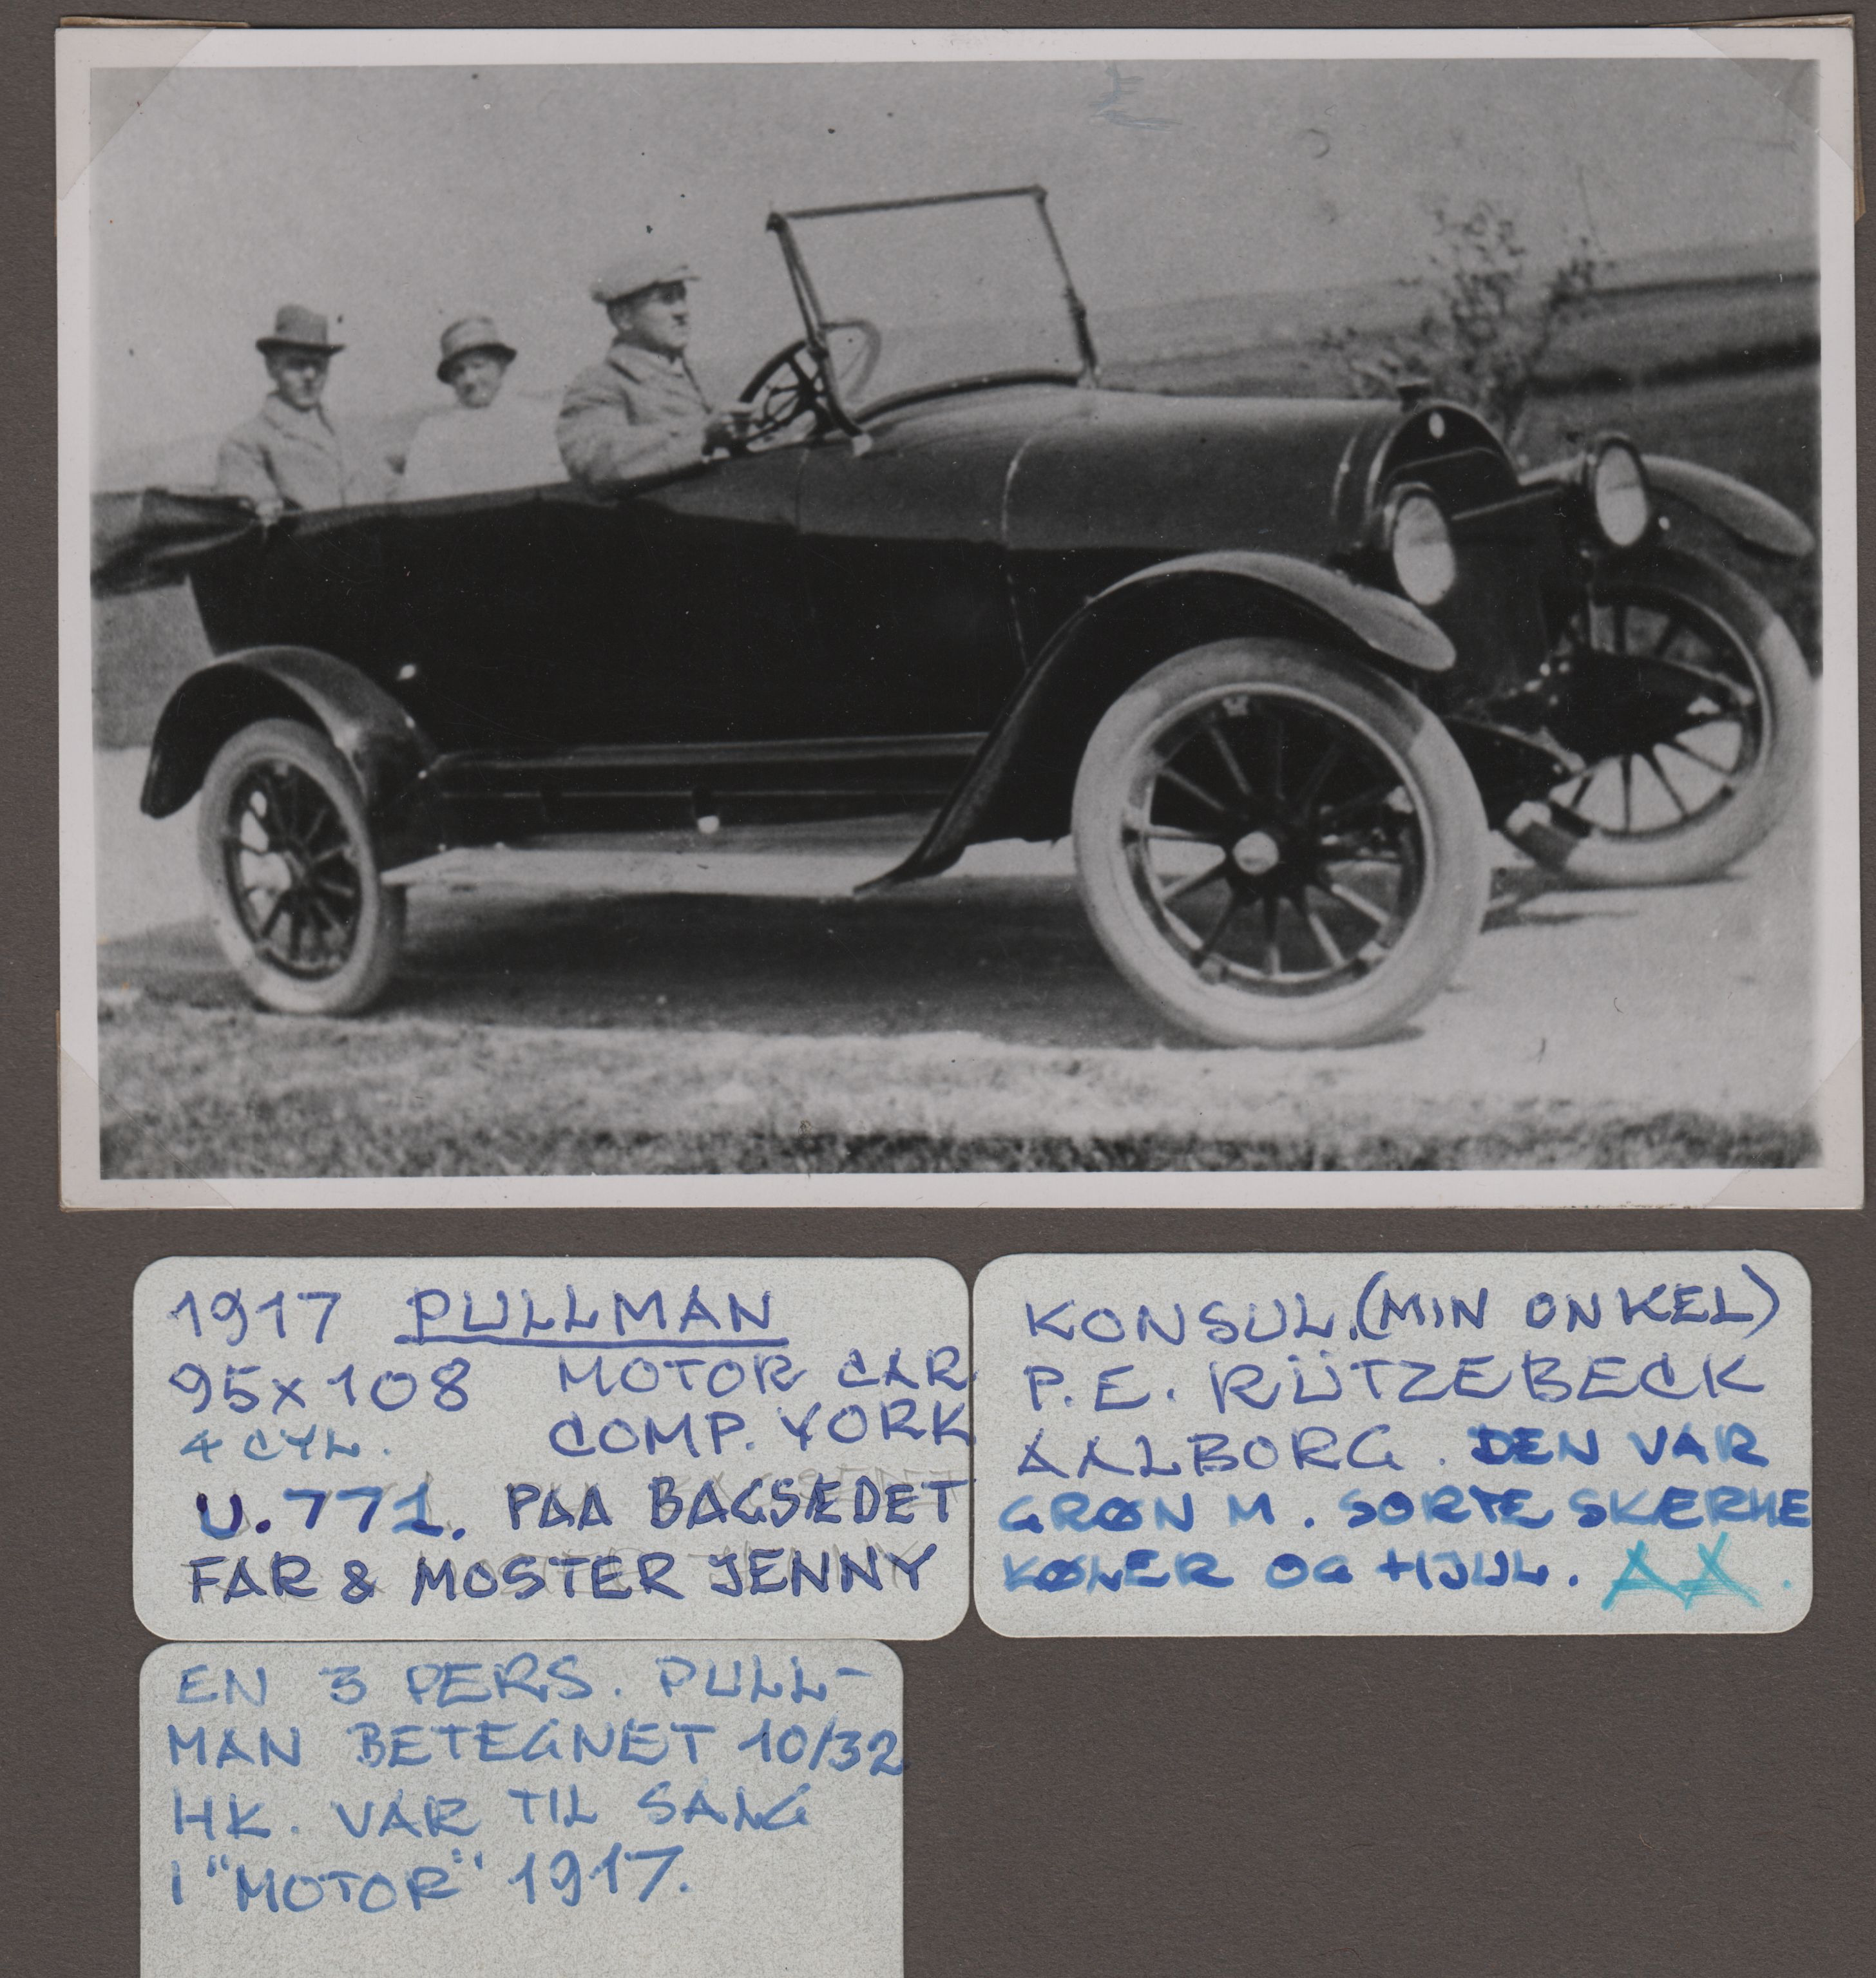 1917 PULLMAN
95x108 MOTOR CAR
4 CYL. COMP. YORK
U.771. PAA BAGSÆDET
FAR & MOSTER JENNY
KONSUL. (MIN ONKEL)
P.E. RÜTZEBECK
AALBORG. DEN VAR
GRØN M. SORTE SKÆRME
KØLER OG HJUL. AA.
EN 3 PERS. PULL-
MAN BETEGNET 10/32
HK. VAR TIL SALG
I "MOTOR" 1917.